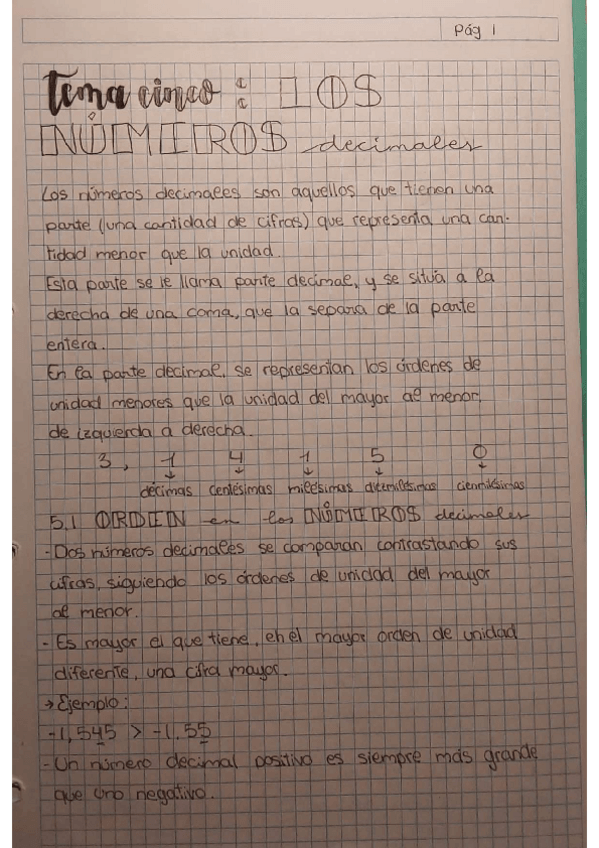 Pág 1
Tema cinco: LOS
NÚMEROS decimales
Los números decimales son aquellos que tienen una
parte (una cantidad de cifras) que representa una can-
tidad menor que la unidad.
Esta parte se le llama parte decimal, y se situa a la
derecha de una coma, que la separa de la parte
entera.
En la parte decimal, se representan los órdenes de
unidad menores que la unidad del mayor al menor,
de izquierda a derecha.
3, 1 4 1 5 0
décimas centésimas milésimas diezmilésimas cienmilésimas
5.1 ORDEN en los NÚMEROS decimales
- Dos números decimales se comparan contrastando sus
cifras, siguiendo los órdenes de unidad del mayor
al menor.
- Es mayor el que tiene, en el mayor orden de unidad
diferente, una cifra mayor.
→ Ejemplo:
-1,545 > -1,55
- Un número decimal positivo es siempre más grande
que uno negativo.